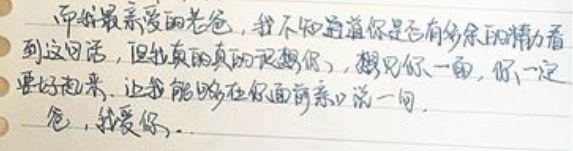 而我最亲爱的老爸，我不知道你是否有多余的精力看
到这句话，但我真的真的很想你，想见你一面，你一定
要好起来，让我能够在你面前亲口说一句，
爸，我爱你。